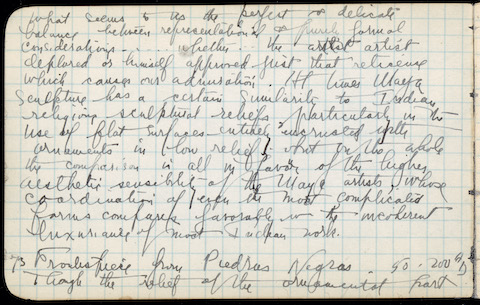 what seems to us the perfect & delicate
balance between representational & purely formal
considerations .... whether .. the artist artist
deplored or himself approved just that
which causes our admiration. At times Maya
Sculpture has a certain similarity to Indian
religious sculptural reliefs, particularly in the
use of flat surfaces entirely incrusted with
ornaments in low relief, but on the whole
the comparison is all in favor of the higher
aesthetic sensibility of the Maya artists, whose
co-ordination of even the most complicated
forms compares favorably w the incoherent
luxuriance of most Indian work.
73 Frontispiece from Piedras Negras. 50-200 AD
Though the relief of the ornamental part